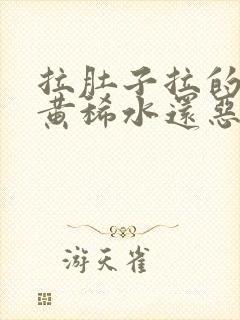 拉肚子拉的
黄稀水還惡
游天雀